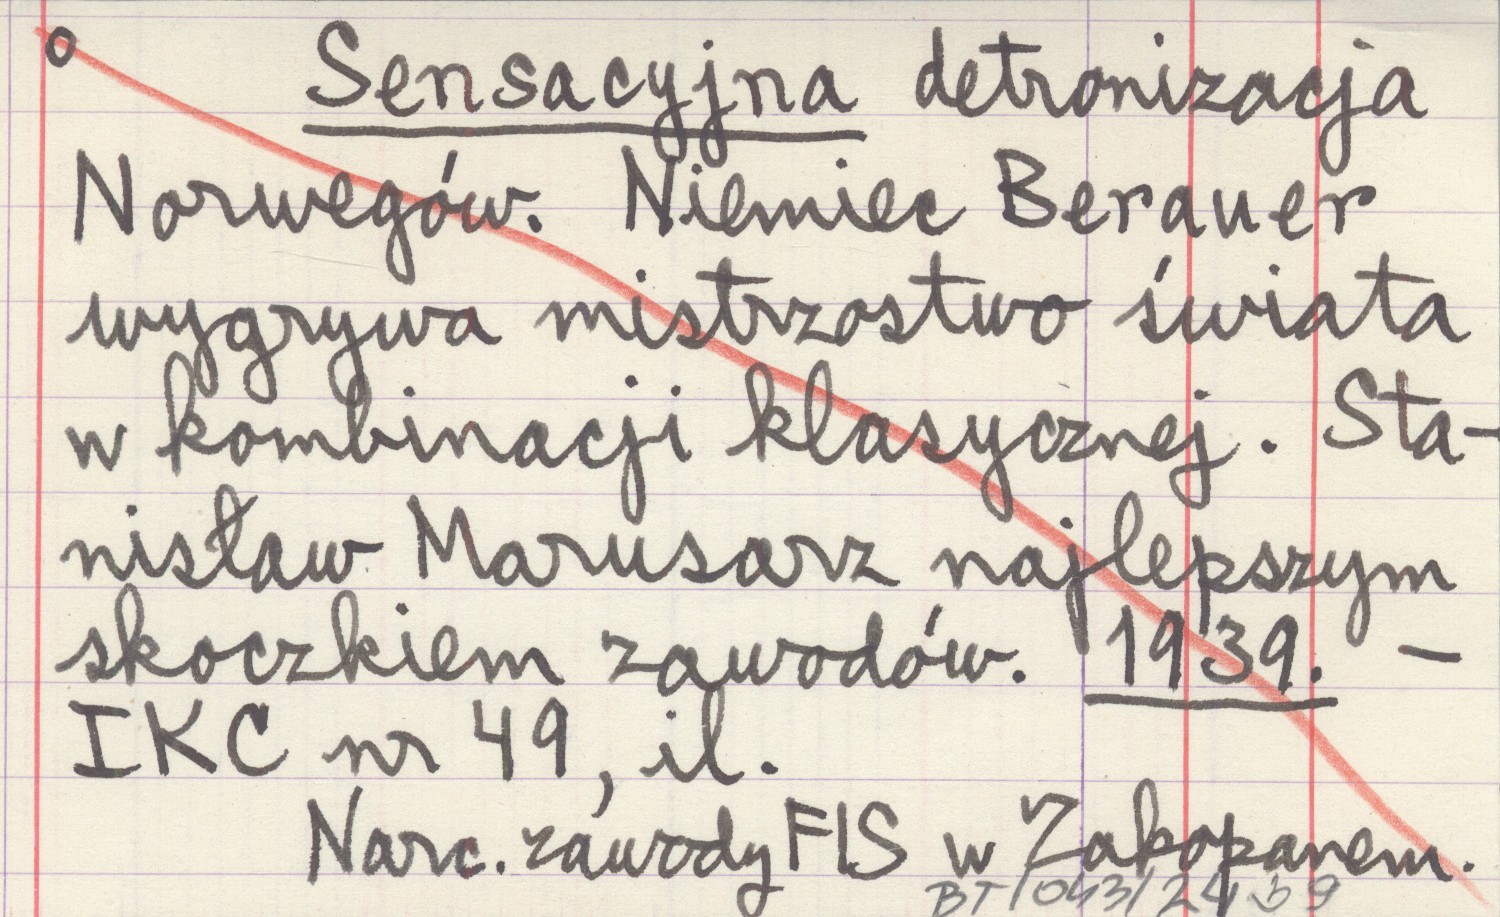 o Sensacyjna detronizacja
Norwegów. Niemiec Berauer
wygrywa mistrzostwo świata
w kombinacji klasycznej. Sta-
nisław Marusarz najlepszym
skoczkiem zawodów. 1939. –
IKC nr 49, il.
Narc. zawody FIS w Zakopanem.
BT/043/24